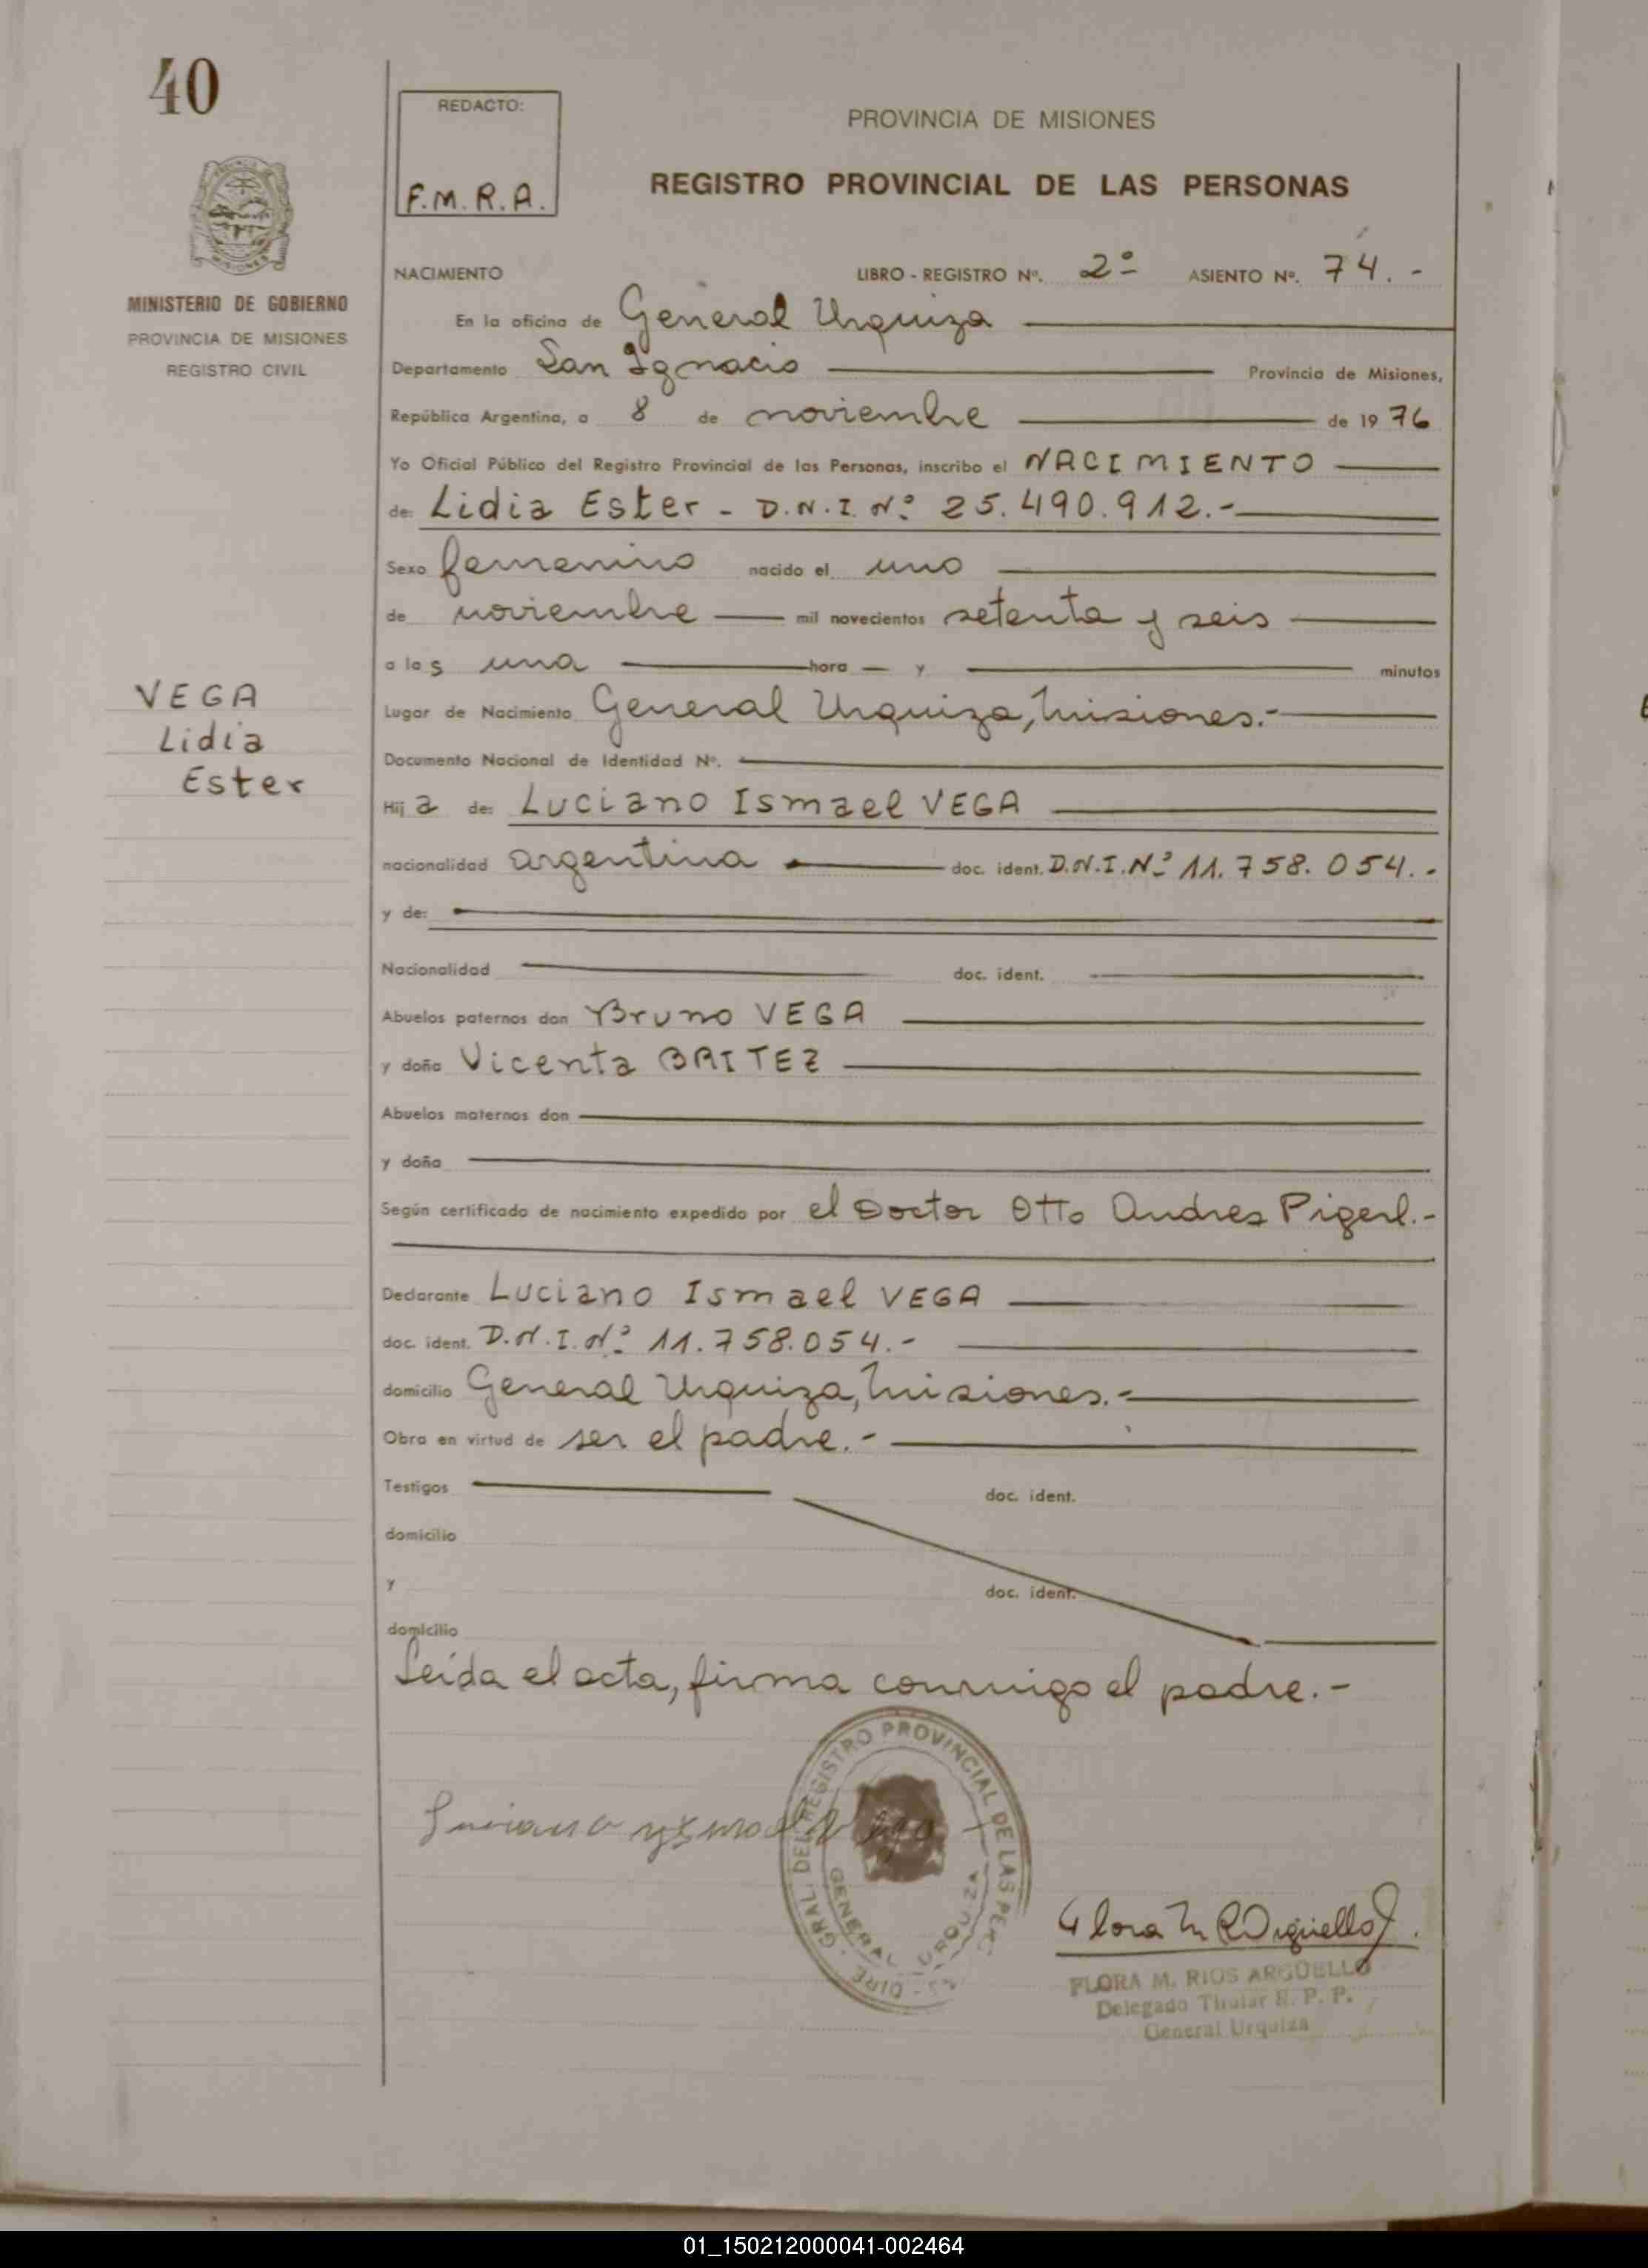 40
REDACTO:
F.M.R.A.
PROVINCIA DE MISIONES
REGISTRO PROVINCIAL DE LAS PERSONAS
MINISTERIO DE GOBIERNO
PROVINCIA DE MISIONES
REGISTRO CIVIL
NACIMIENTO LIBRO - REGISTRO Nº. 2º ASIENTO Nº. 74.-
En la oficina de General Urquiza
Departamento San Ignacio Provincia de Misiones,
República Argentina, a 8 de noviembre de 1976
Yo Oficial Público del Registro Provincial de las Personas, inscribo el NACIMIENTO
de: Lidia Ester - D.N.I.Nº 25.490.912.-
Sexo femenino nacido el uno
de noviembre mil novecientos setenta y seis
a las una hora y minutos
VEGA
Lidia
Ester
Lugar de Nacimiento General Urquiza, Misiones.-
Documento Nacional de Identidad Nº.
Hija de: Luciano Ismael VEGA
nacionalidad argentina doc. ident. D.N.I.Nº 11.758.054.-
y de:
Nacionalidad doc. ident.
Abuelos paternos don Bruno VEGA
y doña Vicenta BRITEZ
Abuelos maternos don
y doña
Según certificado de nacimiento expedido por el Doctor Otto Andres Pigerl.-
Declarante Luciano Ismael VEGA
doc. ident. D.N.I.Nº 11.758.054.-
domicilio General Urquiza, Misiones.-
Obra en virtud de ser el padre.-
Testigos doc. ident.
domicilio
y doc. ident.
domicilio
Leída el acta, firma conmigo el padre.-
DIRE. GRAL. DEL REGISTRO PROVINCIAL DE LAS PERS.
GENERAL URQUIZA
Flora M R Argüello
FLORA M. RIOS ARGÜELLO
Delegado Titular R. P. P.
General Urquiza
01_150212000041-002464